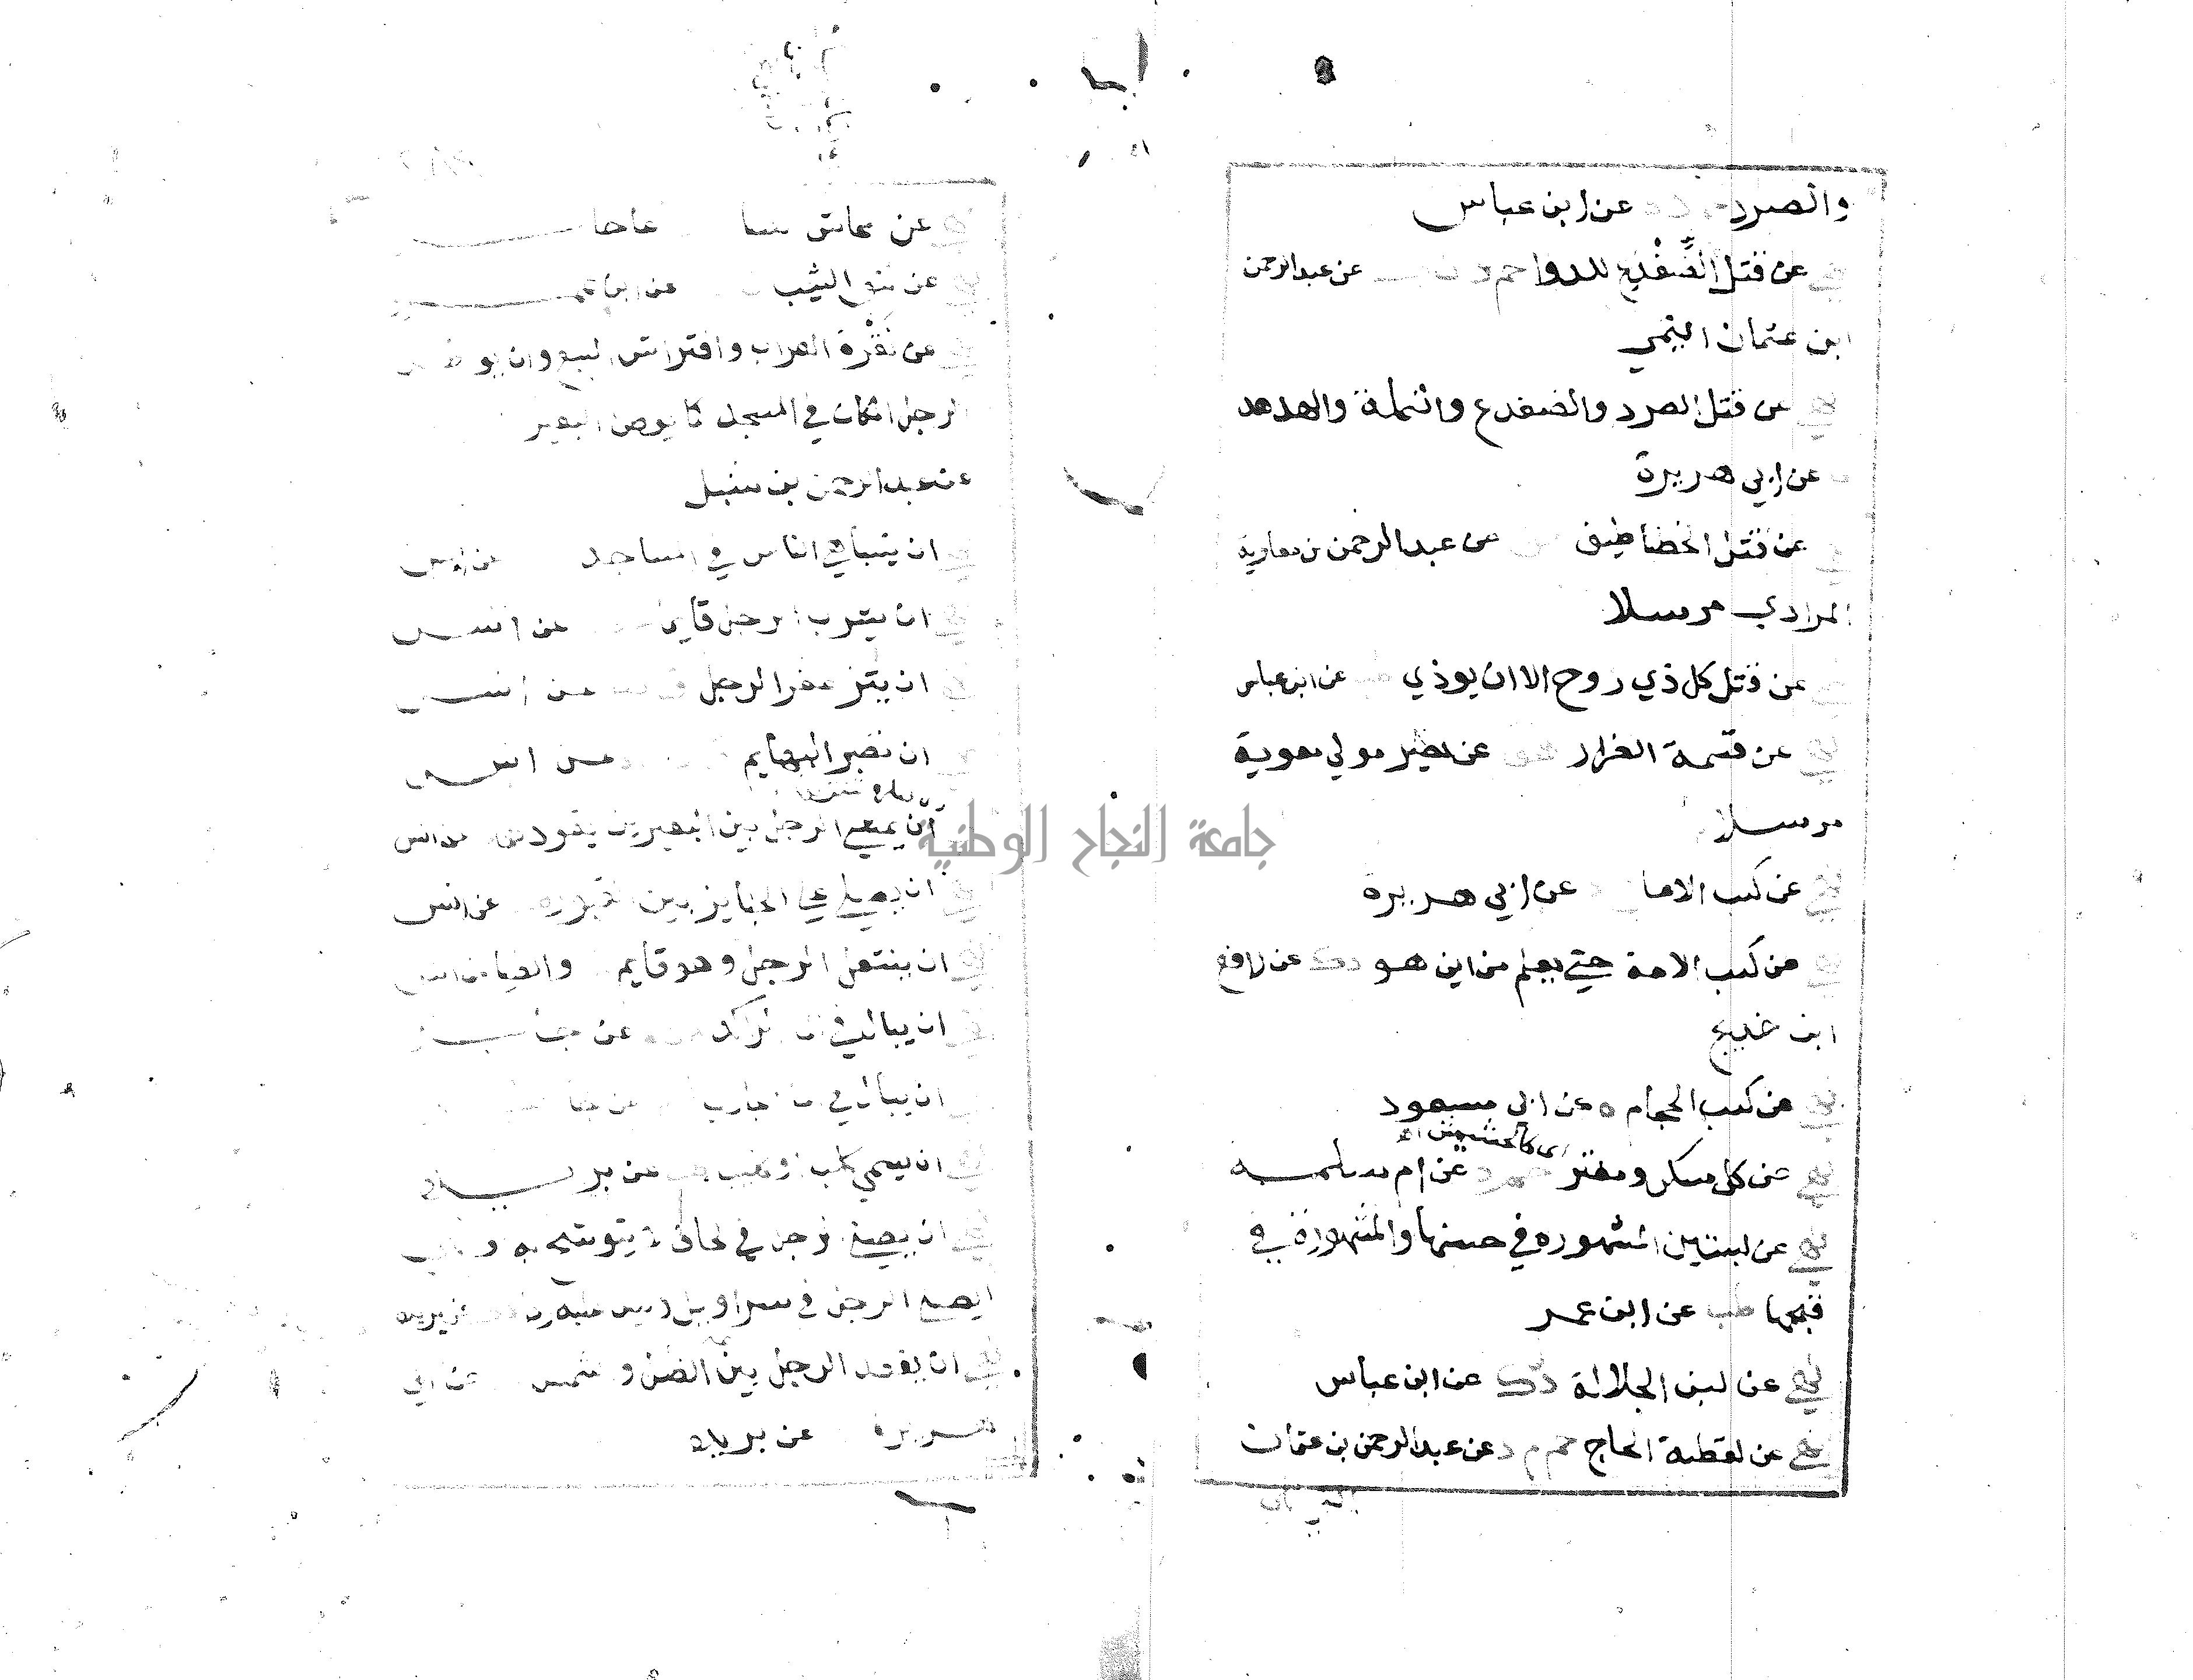 والصرد عن ابن عباس
نهي عن قتل الضفدع للدوا حم د ن عن عبد الرحمن
ابن عثمان التيمي
نهي عن قتل الصرد والضفدع والنملة والهدهد
عن ابي هريرة
نهي عن قتل الخطاطيف عن عبد الرحمن بن معاوية
المرادي مرسلا
نهي عن قتل كل ذي روح الا ان يوذي طب عن ابن عباس
نهي عن قسمة الضرار هق عن نصير مولي معوية
مرسلا
نهي عن كسب الاما د عن ابي هريرة
نهي عن كسب الامة حتي يعلم من اين هو د ك عن رافع
ابن خديج
نهي عن كسب الحجام ه عن ابي مسعود
نهي عن كل مسكر ومفتر حم د عن ام سلمه
نهي عن لبستين المشهوره في حسنها والمشهورة في
قبحها طب عن ابن عمر
نهي عن لبن الجلالة د ك عن ابن عباس
نهي عن لقطة الحاج حم م د عن عبد الرحمن بن عثمان
التيمي
نهي عن
نهي عن نتف الشيب عن ابن
نهي عن نقرة الغراب وافتراش السبع وان يوطن
الرجل المكان في المسجد كما يوطن البعير
عن عبد الرحمن بن شبل
نهي ان يتباهي الناس في المساجد عن انس
نهي ان يشرب الرجل قايما عن انس
نهي ان يتزعفر الرجل ق عن انس
نهي ان تصبر البهايم عن انس
ان يمشي الرجل بين البعيرين يقودهما عن انس
نهي ان يصلي علي الجنايز بين القبور عن انس
نهي ان ينتعل الرجل وهو قايم والضيا عن انس
نهي ان يبال في الما الراكد عن جابر
نهي ان يبال في الما الجاري عن جابر
نهي ان يسمي كلب او كليب طب عن بريده
نهي ان يصلي الرجل في لحاف لا يتوشح به و
يصلي الرجل في سراويل وليس عليه ردا بريده
نهي ان يقعد الرجل بين الظل والشمس عن ابي
هريرة عن بريده
جامعة النجاح الوطنية